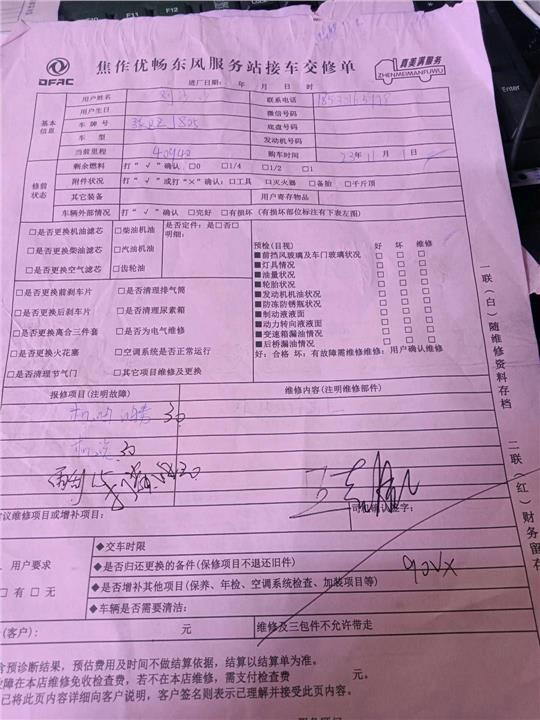 DFAC
焦作优畅东风服务站接车交修单
真美满服务
ZHENMEIMANFUWU
进厂日期： 年 月 日 时
基本信息
用户姓名
联系电话
用户生日
微信号码
车 牌 号
1805
底盘号码
车 型
发动机号码
当前里程
40940
购车时间
23年11月1日
修前状态
剩余燃料
打“ √ ”确认 □0 □1/4 □1/2 □1
附件状况
打“ √ ”或打“×”确认：□工具 □灭火器 □备胎 □千斤顶
其它装备
用户寄存物品
车辆外部情况
打“ √ ”确认 □完好 □有损坏（有损坏部位标注有下表左图）
□是否更换机油滤芯
□是否更换柴油滤芯
□是否更换空气滤芯
□柴油机油
□汽油机油
□齿轮油
是否定件：是□否□
明细：
□是否更换前刹车片
□是否更换后刹车片
□是否更换离合三件套
□是否更换火花塞
□是否清理节气门
□是否清理排气筒
□是否清理尿素箱
□是否为电气维修
□空调系统是否正常运行
□其它项目维修及更换
预检(目视) 好 坏 维修
■前挡风玻璃及车门玻璃状况 □ □ □
■灯具情况 □ □ □
■油量状况 □ □ □
■轮胎状况 □ □ □
■发动机机油状况 □ □ □
■防冻防锈瓶状况 □ □ □
■制动液液面 □ □ □
■动力转向液液面 □ □ □
■变速箱漏油情况 □ □ □
■后桥漏油情况 □ □ □
好：合格 坏：有故障需维修维修：用户确认维修
报修项目(注明故障)
维修内容(注明维修部件)
30
30
建议维修项目或增补项目：
司机确认签字：
用户要求
□ 有 □ 无
◆交车时限
◆是否归还更换的备件(保修项目不退还旧件)
◆是否增补其他项目(保养、年检、空调系统检查、加装项目等)
◆车辆是否需要清洁：
(客户)： 元
维修及三包件不允许带走
含预诊断结果，预估费用及时间不做结算依据，结算以结算单为准。
故障在本店维修免收检查费，若不在本店维修，需支付检查费 元。
已将此页内容详细向客户说明，客户签名则表示已理解并接受此页内容。
一联(白)随维修资料存档
二联(红)财务留存
Enter
F11
F12